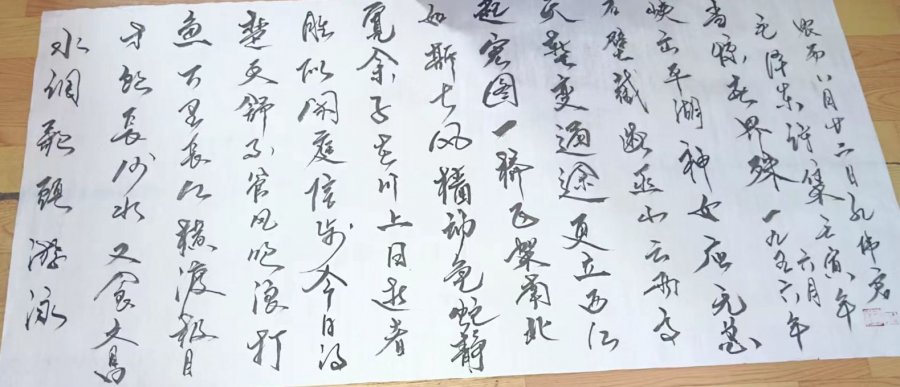 水调歌頭游泳
才饮长沙水又食武昌
鱼万里长江横渡极目
楚天舒不管风吹浪打
胜似闲庭信步今日得
宽余子在川上曰逝者
如斯夫风樯动龟蛇静
起宏图一桥飞架南北
天堑变通途更立西江
石壁截断巫山云雨高
峡出平湖神女应无恙
当惊世界殊一九五六年
六月
毛泽东诗集壬寅年
八月廿二日孔伟